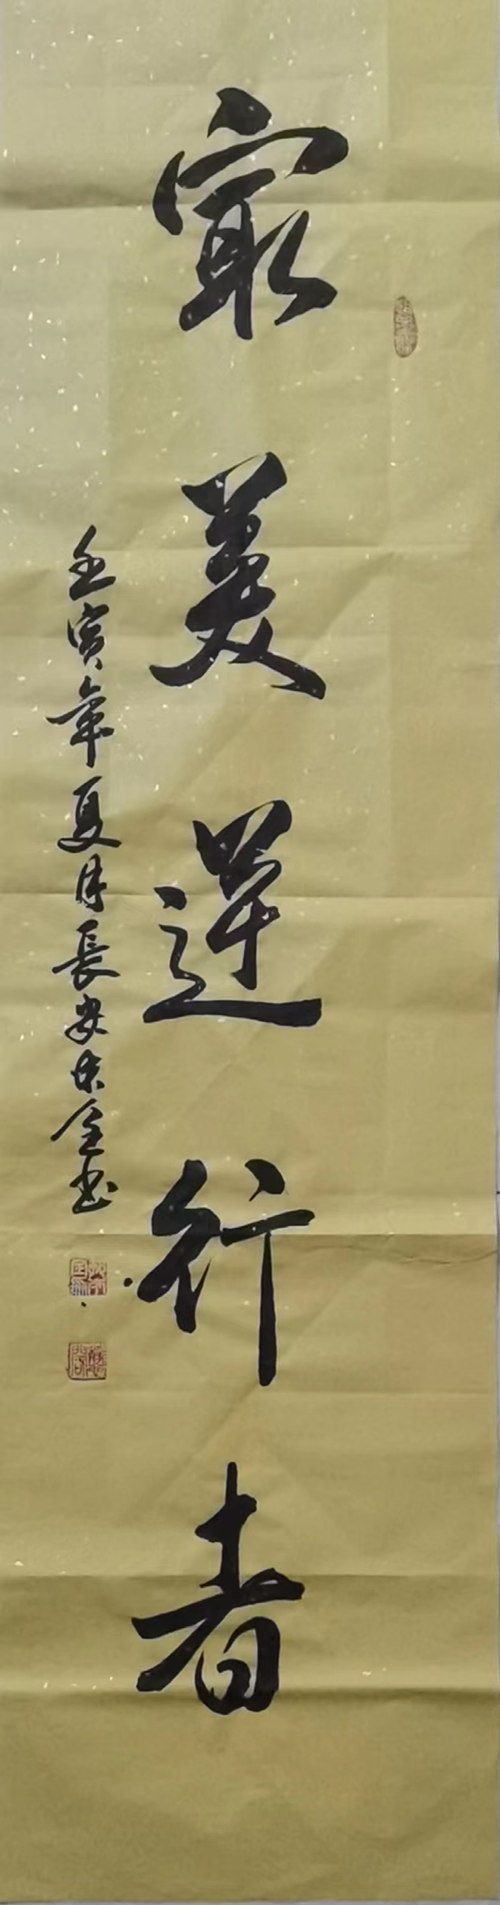 冣美逆行者
壬寅年夏月長安宋全书